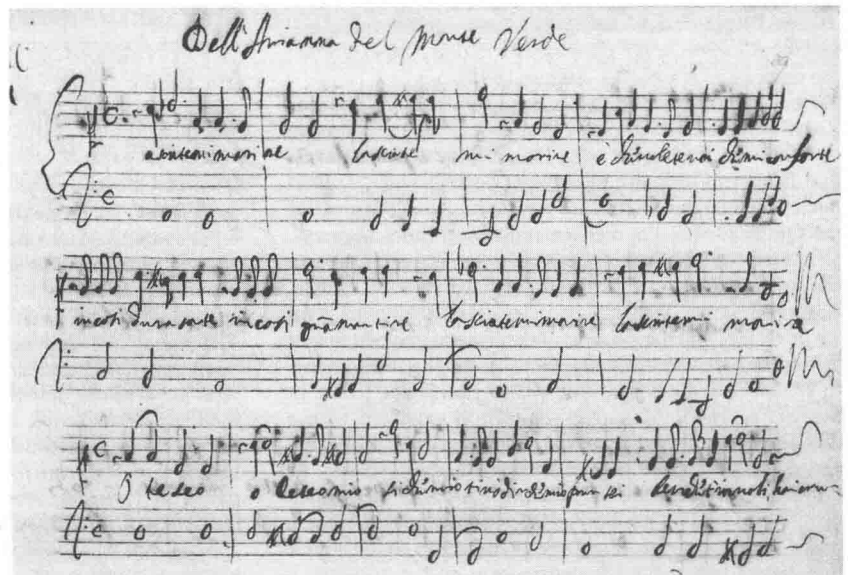 Dell'Arianna del Monte Verde
lasciatemi morire lasciate mi morire e che volete voi che mi conforte
in cosi dura sorte in cosi gran martire lasciatemi morire lasciatemi morire
O teseo o teseo mio si che mio ti vo dir che mio pur sei